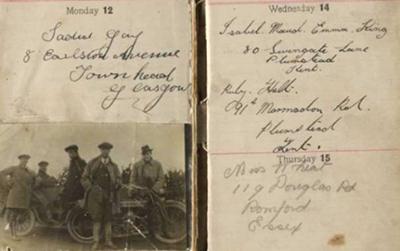 Monday 12
Sadie Gay
8 Earlston Avenue
Townhead
Glasgow
Wednesday 14
Isabel. Maud. Emma. King
80 Swingate Lane
Plumstead
Kent.
Ruby. Hall.
91 Marmadon Rd.
Plumstead
Kent.
Thursday 15
Miss
119 Douglas Rd
Romford
Essex